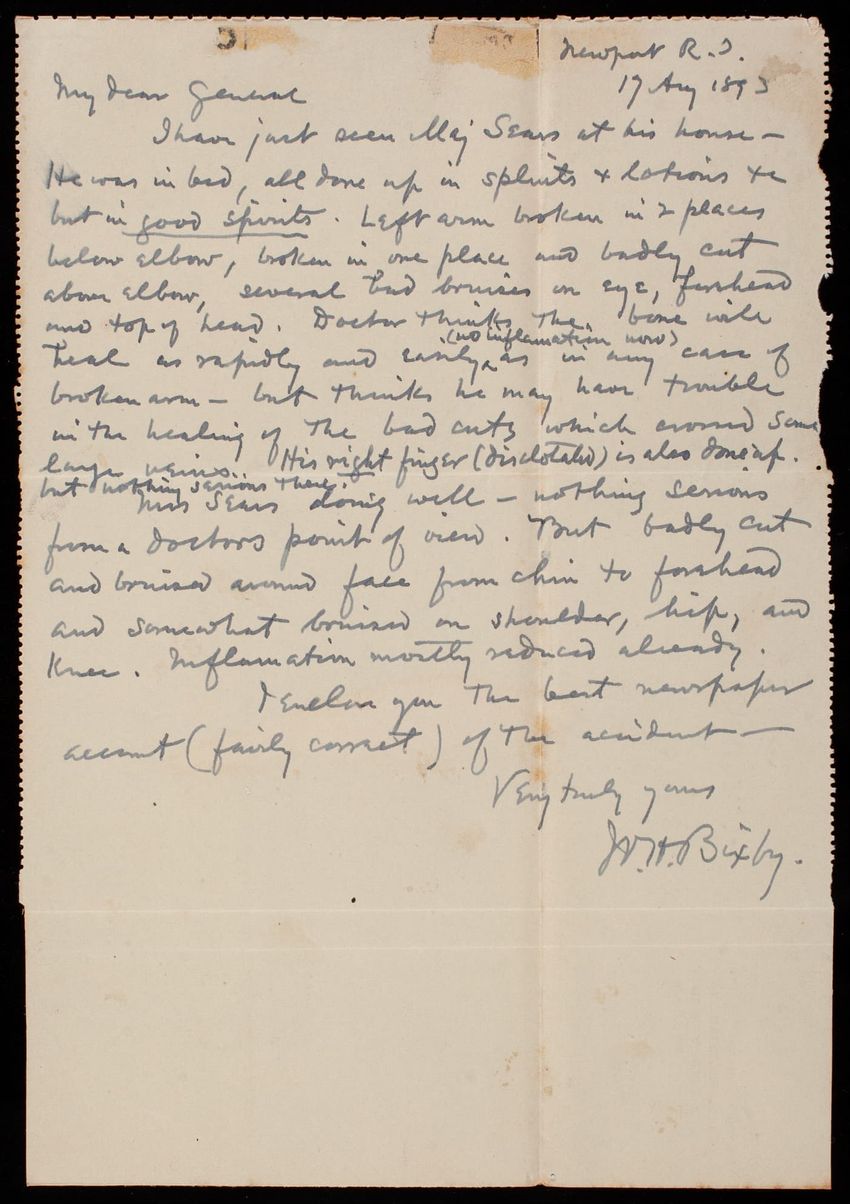 Newport R.I.
17 Aug 1893
My dear General
I have just seen Maj Sears at his house —
He was in bed, all done up in splints & lotions &c
but in good spirits. Left arm broken in 2 places
below elbow, broken in one place and badly cut
above elbow, several bad bruises on eye, forehead
and top of head. Doctor thinks the bone will
(no inflamation now)
heal as rapidly and easily ‸ as in any case of
broken arm — but thinks he may have trouble
in the healing of the bad cuts which crossed some
large veins. His right finger (dislotated) is also done up.
but nothing serious there.
Mrs Sears doing well — nothing serious
from a doctors point of view. But badly cut
and bruised around face from chin to forehead
and somewhat bruised on shoulder, hip, and
Knee. Inflamation mostly reduced already.
I enclose you the best newspaper
account (fairly correct) of the accident —
Very truly yours
W.H. Bixby.